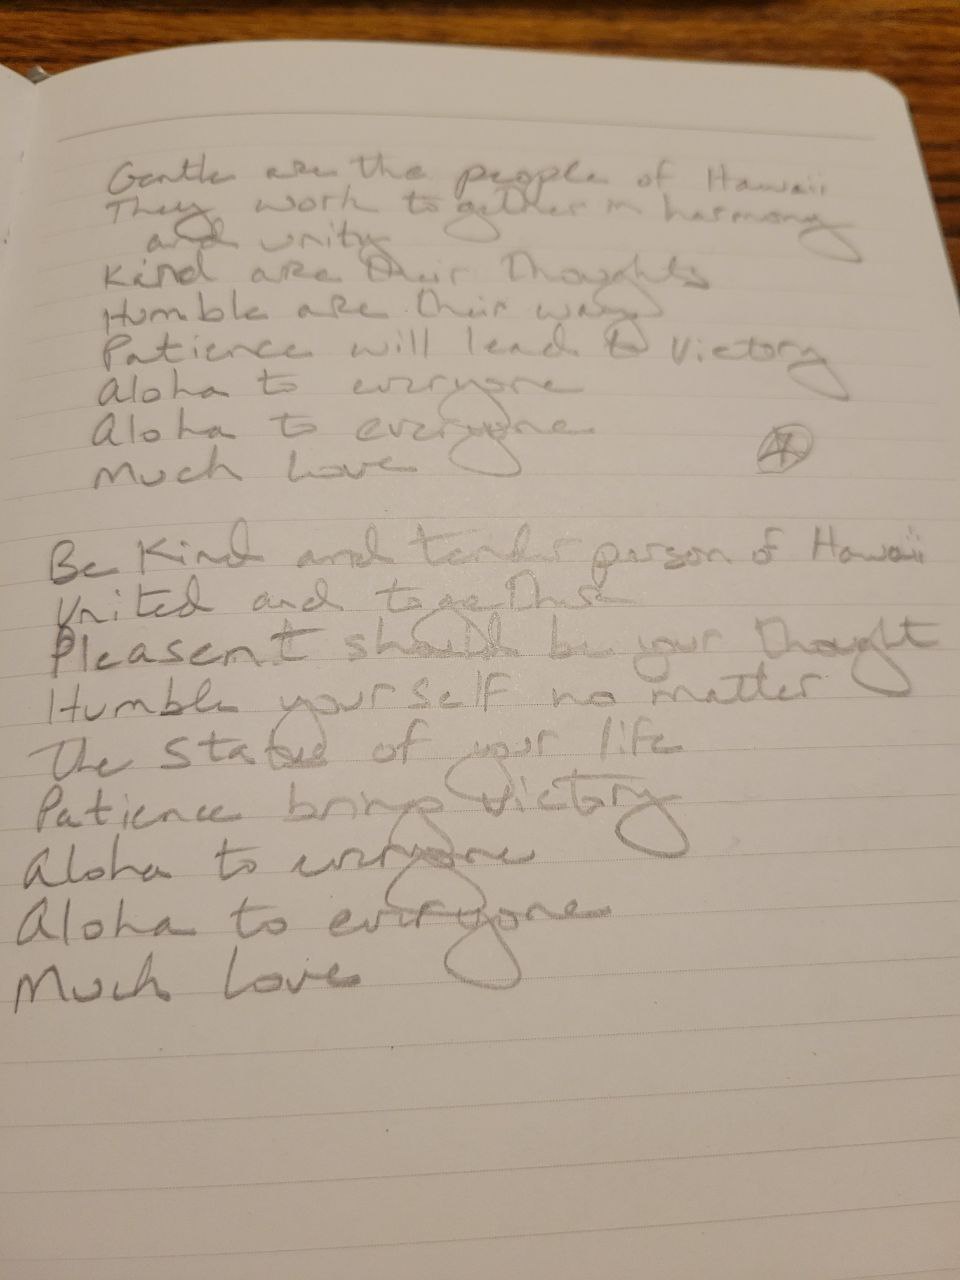 Gentle are the people of Hawaii
They work together in harmony
and unity
Kind are their thoughts
Humble are their ways
Patience will lead to victory
Aloha to everyone
Aloha to everyone
Much Love
Be Kind and tender person of Hawaii
United and together
Pleasent should be your thought
Humble yourself no matter
The status of your life
Patience brings victory
Aloha to everyone
Aloha to everyone
Much Love